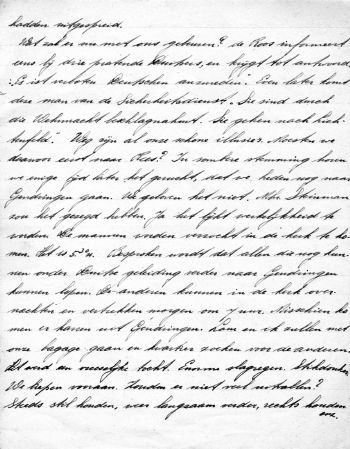 hadden uitgespreid.
Wat zal er nu met ons gebeuren? de Roos informeert
eens bij drie pratende Duitschers, en krijgt tot antwoord
"Es ist verboten Deutschen anzureden". Even later komt
des man van de Sicherheitsdienst. "Sie sind durch
die Wehrmacht beschlagnahmt. Sie gehen nach Lich-
tenfelde". Weg zijn al onze schone illusies. Moesten we
daarvoor eerst naar Rees? In sombere stemming horen
we enige tijd later het gerucht, dat we heden nog naar
Gendringen gaan. We geloven het niet. Mhr.
zou het gezegd hebben. Ja het lijkt werkelijkheid te
worden. De mannen worden verzocht in de kerk te ko-
men. Het is 5.30 u. Besproken wordt dat allen die nog kun-
nen onder Duitse geleiding verder naar Gendringen
kunnen lopen. De anderen kunnen in de kerk over-
nachten en vertrekken morgen om 7 uur. Misschien ko-
men er karren uit Gendringen. Tom en ik zullen met
onze bagage gaan en kwartier zoeken voor de anderen.
Het werd een vreselijke tocht. Enorme slagregen. Stikdonker.
We liepen vooraan. Zouden er niet veel uitvallen?
Steeds stil houden, weer langzaam verder, rechts houden
enz.